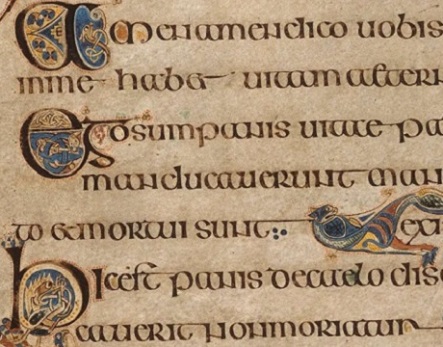 Amen amen dico uobis
inme habet uitam aetern
Ego sum panis uitae pa
manducauerunt man
to et mortui sunt:· exi
hic est panis decaelo dis
cauerit non moriatur